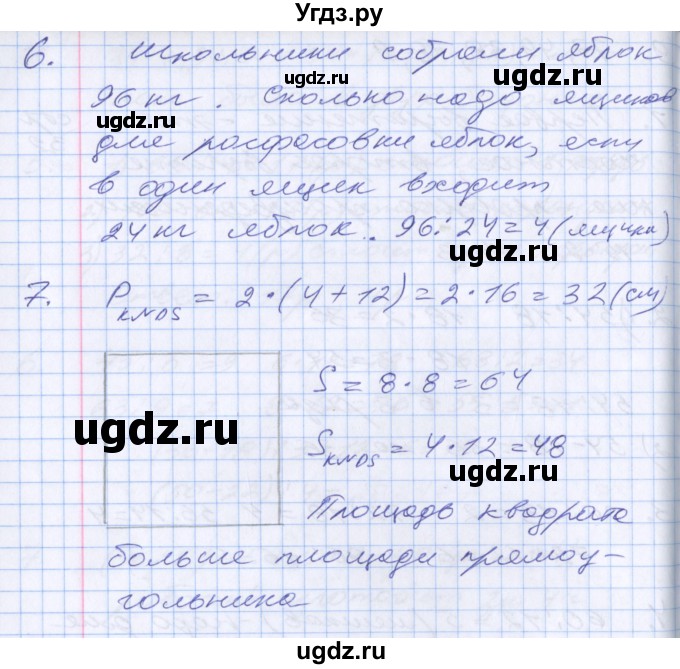 Угдз.ру
6. Школьники собрали яблок
ugdz.ru
ugdz.ru
96 кг. Сколько надо ящиков
ugdz.ru
для расфасовки яблок, если
в один ящик входит
24 кг яблок. 96:24=4(ящика)
ugdz.ru
7. P KNDS = 2·(4+12)=2·16=32(см)
S = 8·8=64
ugdz.ru
S KNDS = 4·12=48
ugdz.ru
Площадь квадрата
больше площади прямоу-
гольника
ugdz.ru